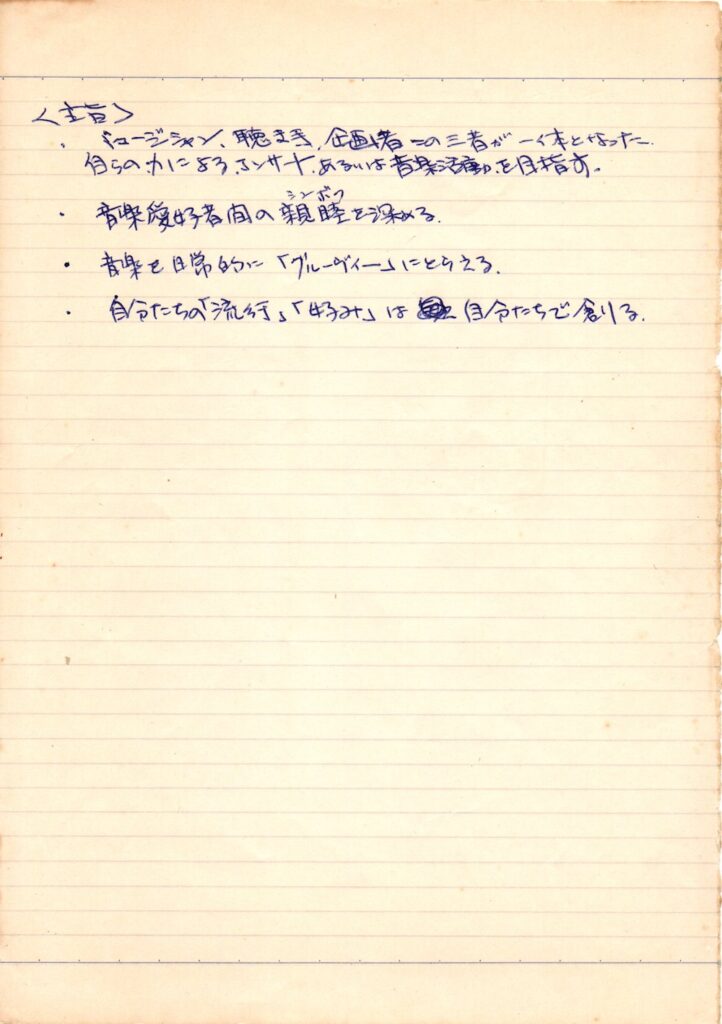 〈主旨〉
・ミュージシャン、聴き手、企画者この三者が一体となった
自らの力によるコンサート、あるいは音楽活動を目指す。
シンボク
・音楽愛好者間の親睦を深める。
・音楽を日常的に「グルーヴィー」にとらえる。
・自分たちの「流行」、「好み」は 自分たちで創りる。